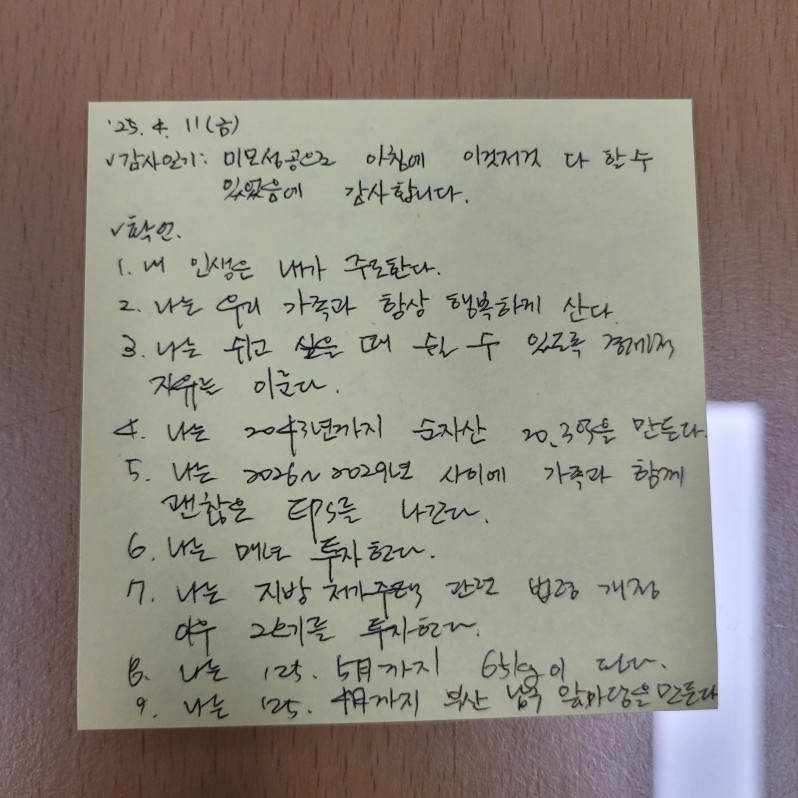 '25. 4. 11(금)
√감사일기: 미모성공으로 아침에 이것저것 다 할 수
있었음에 감사합니다.
√확언.
1. 내 인생은 내가 주도한다.
2. 나는 우리 가족과 항상 행복하게 산다.
3. 나는 쉬고 싶을 때 쉴 수 있도록 경제적
자유를 이룬다.
4. 나는 2043년까지 순자산 20.3억을 만든다.
5. 나는 2026~2029년 사이에 가족과 함께
괜찮은 EPS를 나간다.
6. 나는 매년 투자한다.
7. 나는 지방 저가주택 관련 법령 개정
이후 2호기를 투자한다.
8. 나는 '25. 5月까지 65kg이 된다.
9. 나는 '25. 4月까지 부산 남구 앞마당을 만든다